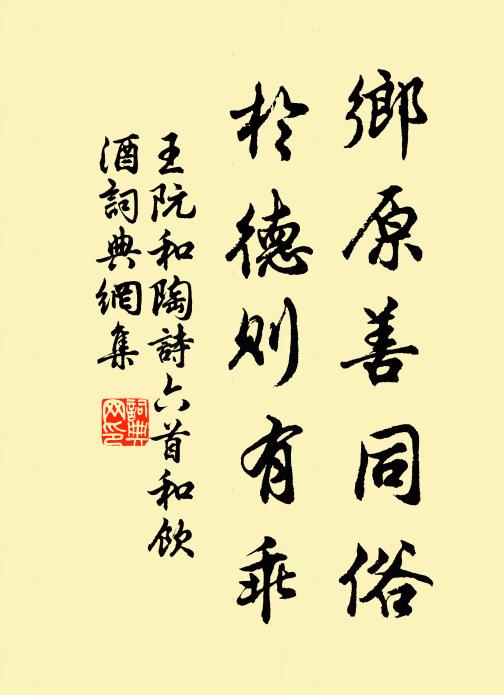 鄉原善同俗
於德則有乖
王阮和陶詩六首和飲
酒詞典網集
詞典
网印